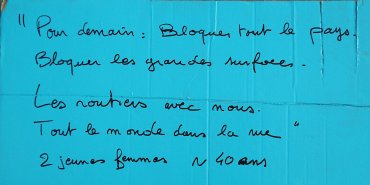 " Pour demain : Bloquer tout le pays.
Bloquer les grandes surfaces.
Les routiers avec nous.
Tout le monde dans la rue "
2 jeunes femmes ~ 40 ans